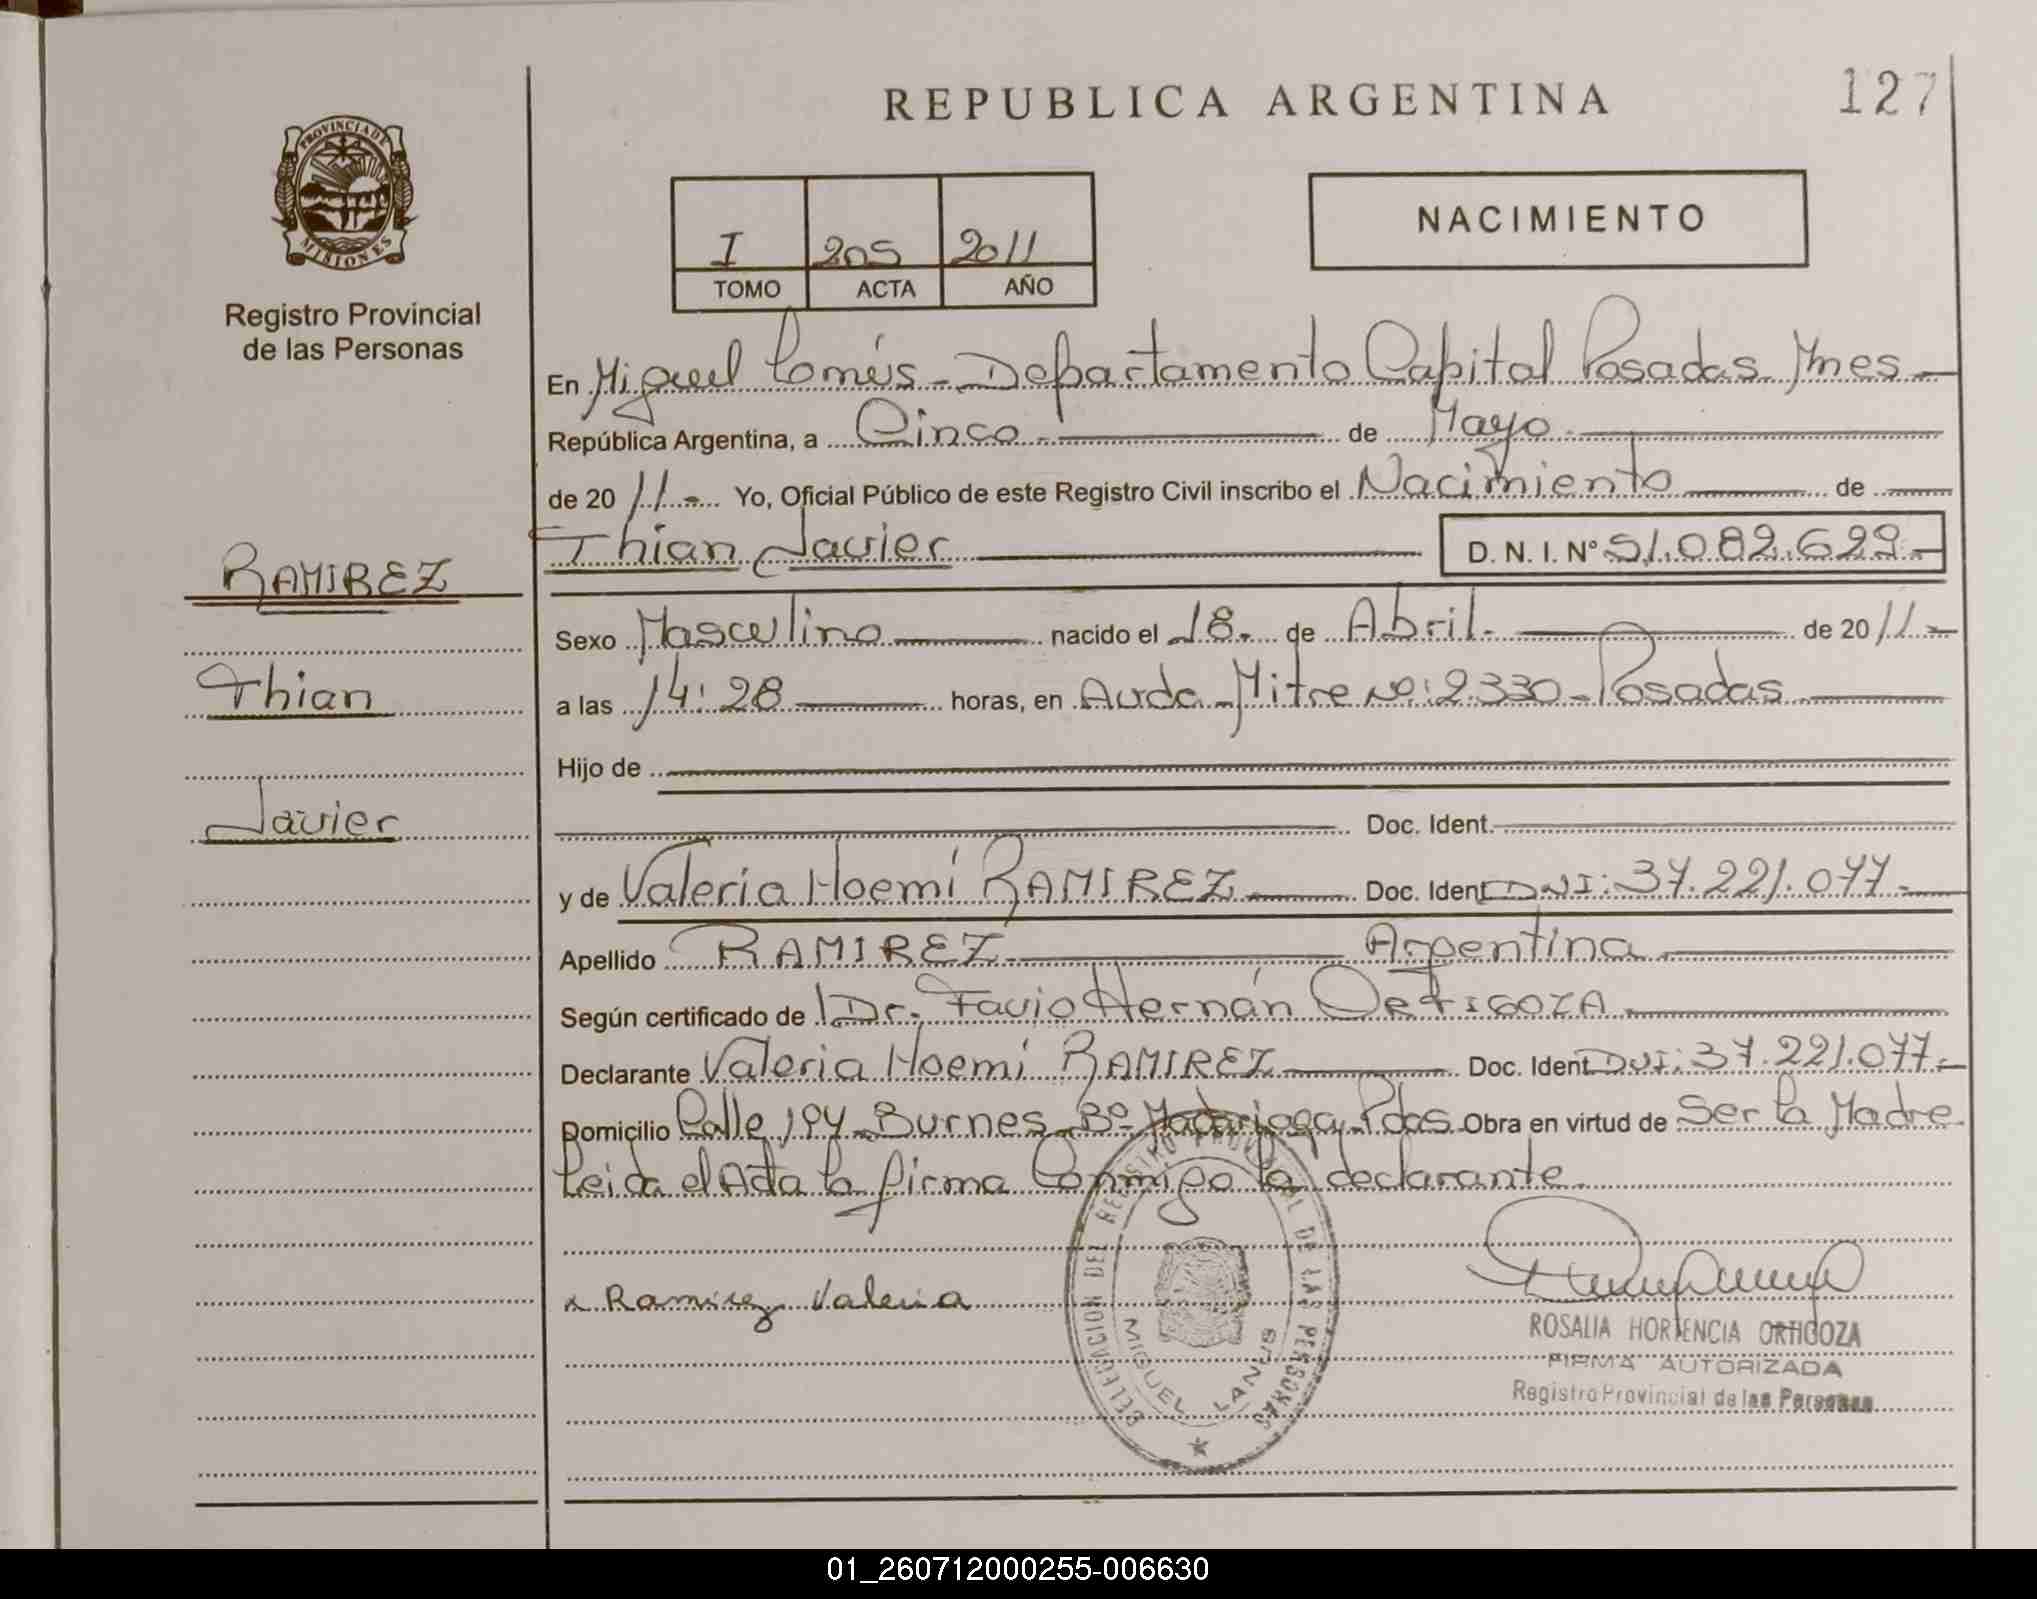 REPUBLICA ARGENTINA
127
PROVINCIA DE
MISIONES
Registro Provincial
de las Personas
I 205 2011
TOMO ACTA AÑO
NACIMIENTO
En Miguel Lanús - Departamento Capital Posadas Mnes -
República Argentina, a Cinco - de Mayo -
de 2011 - Yo, Oficial Público de este Registro Civil inscribo el Nacimiento de
Thian Javier D. N. I. Nº 51.082.629 -
RAMIREZ
Thian
Javier
Sexo Masculino nacido el 18 - de Abril - de 2011 -
a las 14:28 horas, en Avda - Mitre Nº: 2330 - Posadas
Hijo de
Doc. Ident.
y de Valeria Noemí RAMIREZ Doc. Ident DNI: 37.221.077 -
Apellido RAMIREZ Argentina
Según certificado de Dr. Favio Hernán ORTIGOZA
Declarante Valeria Noemí RAMIREZ Doc. Ident DNI: 37.221.077 -
Domicilio Calle 194 Burnes Bº Madariaga - Pdas Obra en virtud de Ser la Madre
Leida el Acta la firma Conmigo la declarante.
x Ramirez Valeria
DELEGACION DEL REGISTRO PROVINCIAL DE LAS PERSONAS
MIGUEL LANUS
ROSALIA HORTENCIA ORTIGOZA
FIRMA AUTORIZADA
Registro Provincial de las Personas
01_260712000255-006630